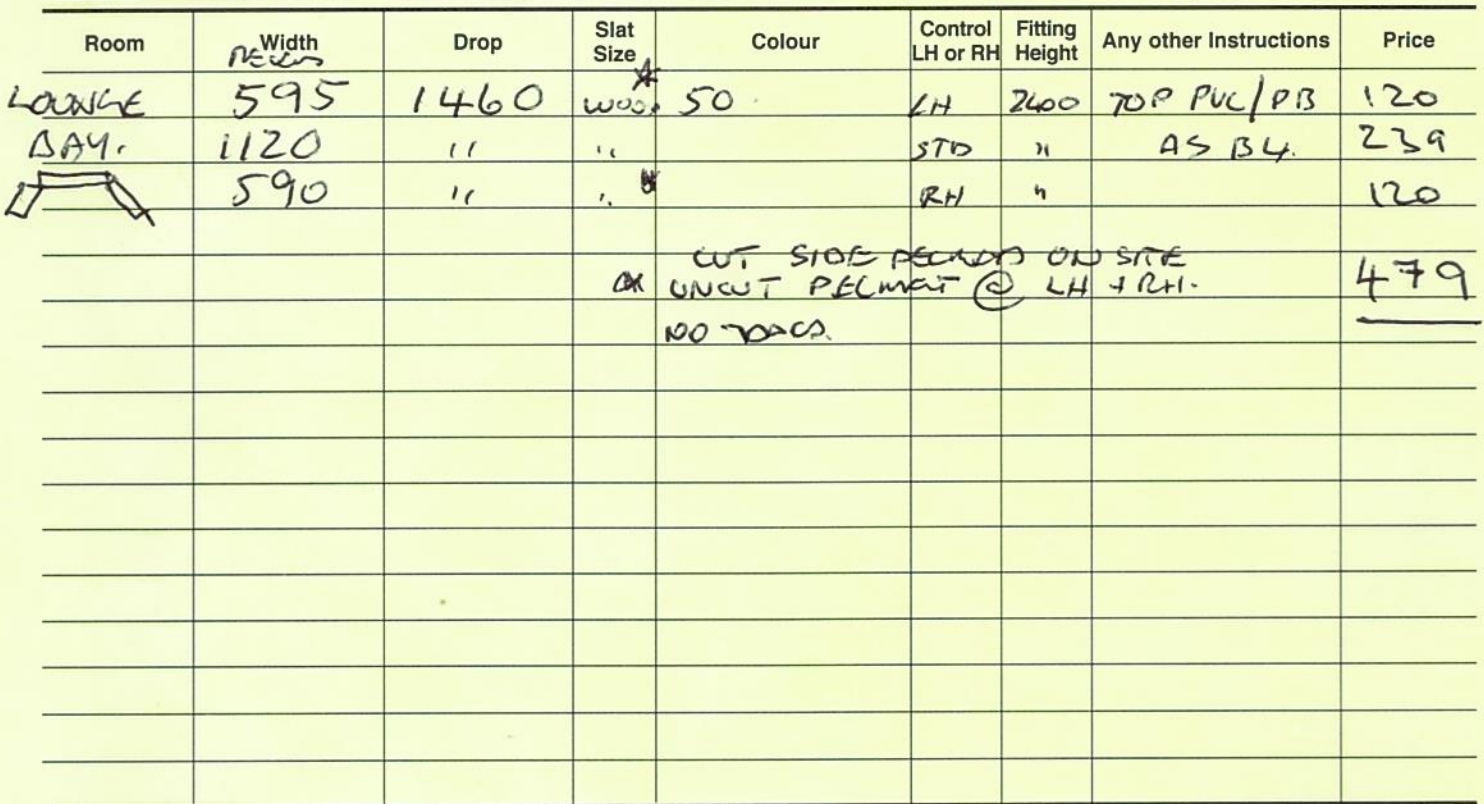 Room Width Drop Slat Size Colour Control LH or RH Fitting Height Any other Instructions Price
LOUNGE 595 1460 WOOD 50 LH 2400 TOP PVC/PB 120
BAY. 1120 " " STD " AS B4. 239
590 " " RH " 120
CUT SIDE ON SITE
UNCUT PELMET @ LH + RH. 479
NO